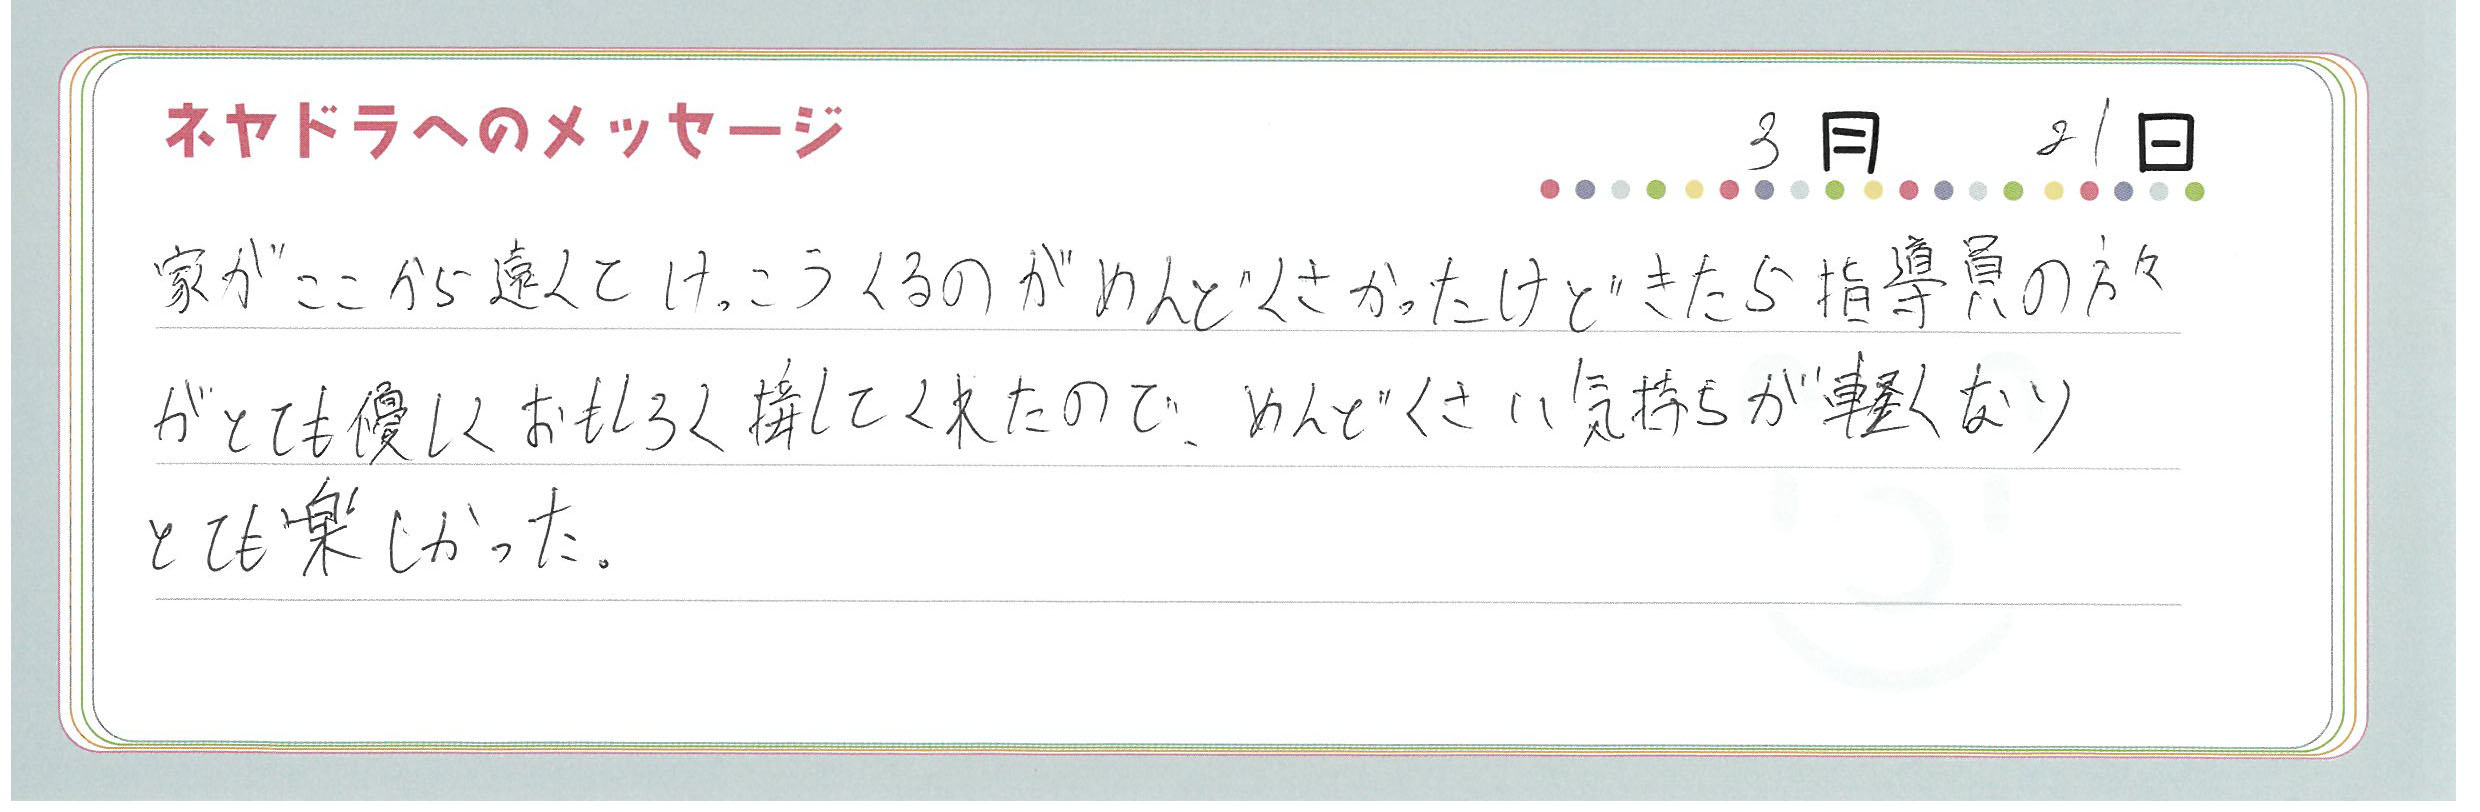 ネヤドラへのメッセージ
3月 21日
家がここから遠くてけっこうくるのがめんどくさかったけどきたら指導員の方々
がとても優しくおもしろく接してくれたので、めんどくさい気持ちが軽くなり
とても楽しかった。